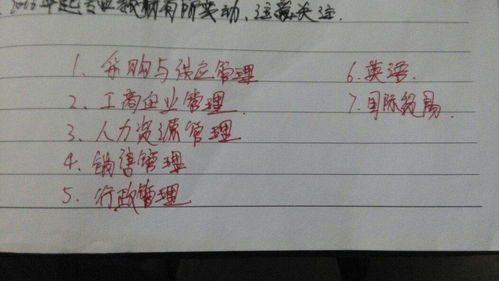 年起专业兼制有所变动,注意关注.
1、采购与供应管理
2、工商企业管理
3、人力资源管理
4、销售管理
5、行政管理
6、英语
7、国际贸易